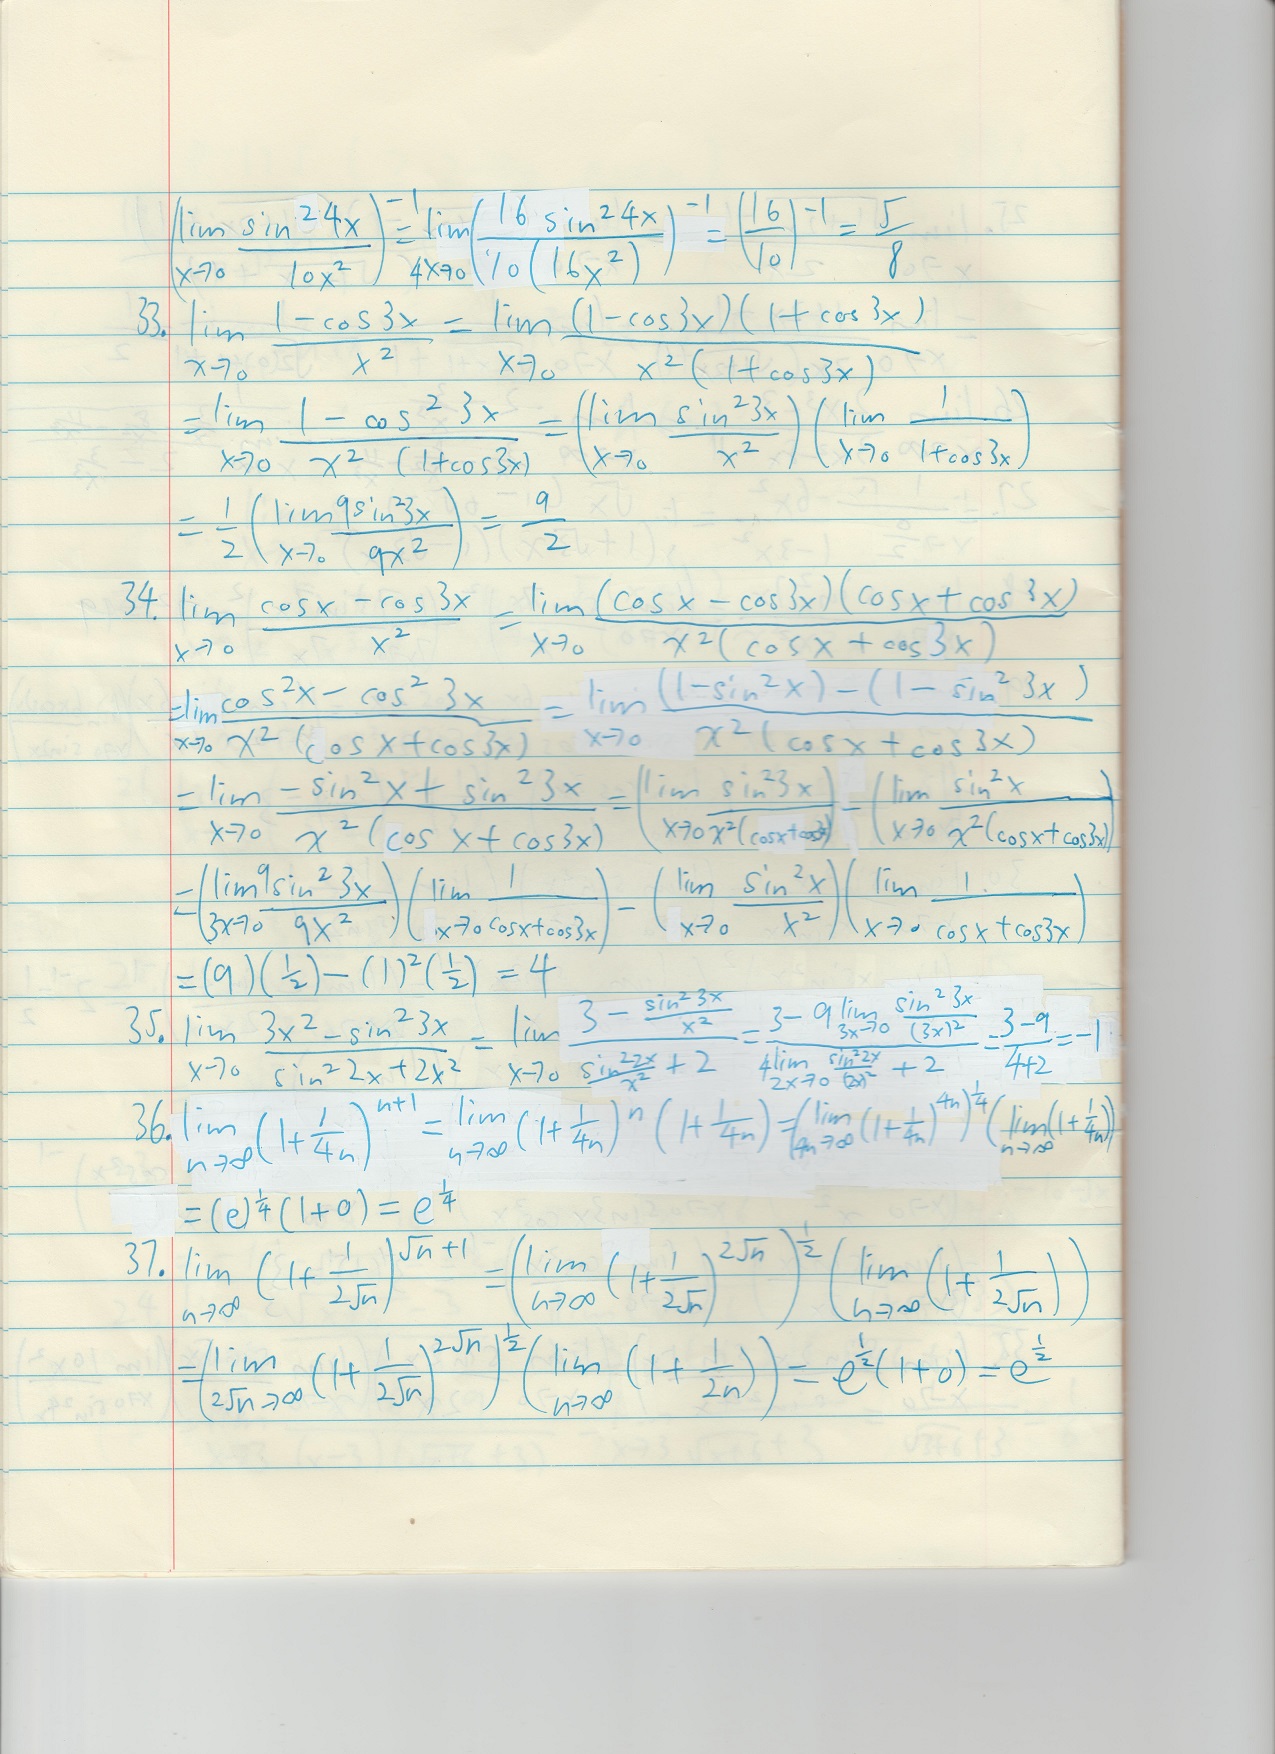 (lim x→0 sin²4x / 10x²)⁻¹ = lim 4x→0 (16 sin²4x / 10(16x²))⁻¹ = (16/10)⁻¹ = 5/8
33. lim x→0 (1-cos3x)/x² = lim x→0 (1-cos3x)(1+cos3x) / x²(1+cos3x)
= lim x→0 (1-cos²3x) / x²(1+cos3x) = (lim x→0 sin²3x / x²)(lim x→0 1/(1+cos3x))
= 1/2 (lim x→0 9sin²3x / 9x²) = 9/2
34. lim x→0 (cosx-cos3x)/x² = lim x→0 (cosx-cos3x)(cosx+cos3x) / x²(cosx+cos3x)
= lim x→0 (cos²x-cos²3x) / x²(cosx+cos3x) = lim x→0 ((1-sin²x)-(1-sin²3x)) / x²(cosx+cos3x)
= lim x→0 (-sin²x+sin²3x) / x²(cosx+cos3x) = (lim x→0 sin²3x / x²(cosx+cos3x)) - (lim x→0 sin²x / x²(cosx+cos3x))
= (lim 3x→0 9sin²3x / 9x²)(lim x→0 1/(cosx+cos3x)) - (lim x→0 sin²x / x²)(lim x→0 1/(cosx+cos3x))
= (9)(1/2)-(1)²(1/2) = 4
35. lim x→0 (3x²-sin²3x)/(sin²2x+2x²) = lim x→0 (3 - sin²3x/x²)/(sin²2x/x² + 2) = (3 - 9 lim 3x→0 sin²3x/(3x)²)/(4 lim 2x→0 sin²2x/(2x)² + 2) = (3-9)/(4+2) = -1
36. lim n→∞ (1+1/4n)ⁿ⁺¹ = lim n→∞ (1+1/4n)ⁿ (1+1/4n) = (lim 4n→∞ (1+1/4n)^4n)^1/4 (lim n→∞ (1+1/4n))
= (e)^1/4 (1+0) = e^1/4
37. lim n→∞ (1+1/2√n)^√n+1 = (lim n→∞ (1+1/2√n)^2√n)^1/2 (lim n→∞ (1+1/2√n))
= (lim 2√n→∞ (1+1/2√n)^2√n)^1/2 (lim n→∞ (1+1/2n)) = e^1/2 (1+0) = e^1/2